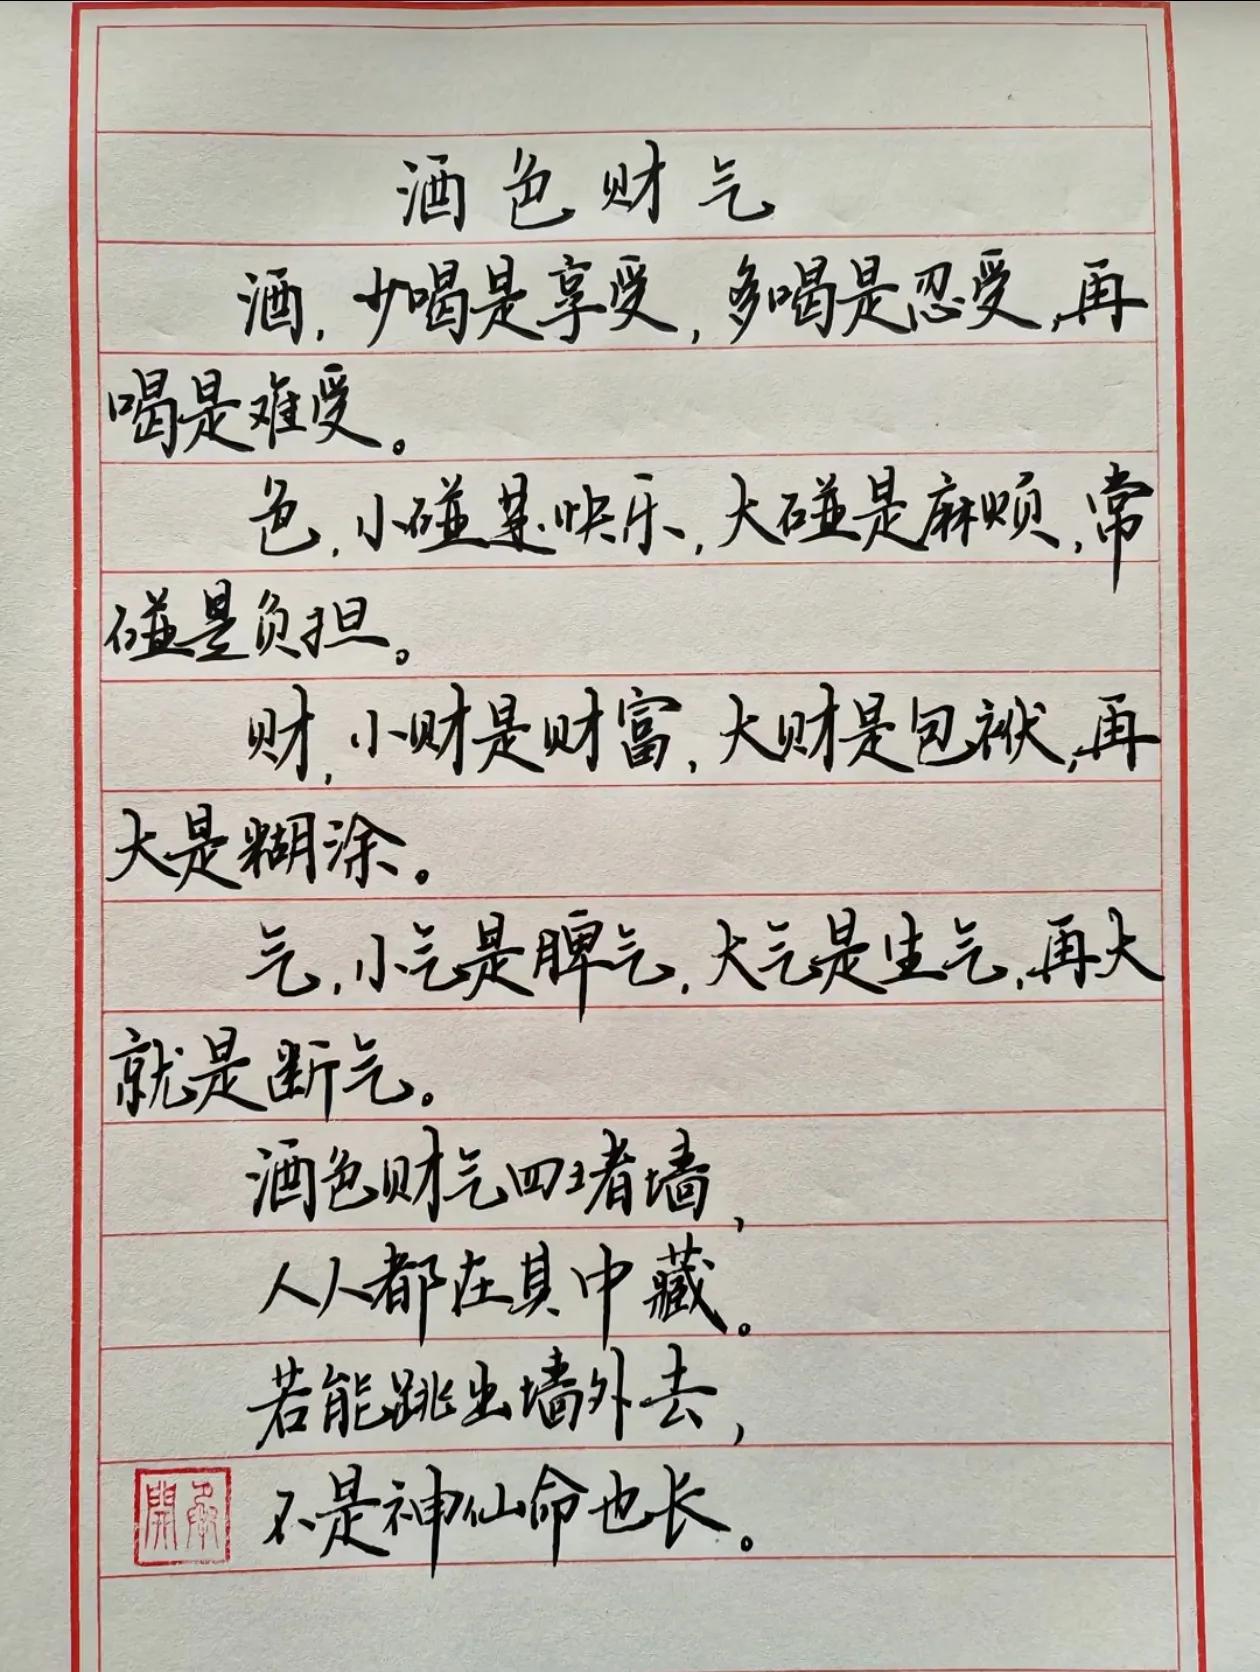 酒色财气
酒,少喝是享受,多喝是忍受,再
喝是难受。
色,小碰是快乐,大碰是麻烦,常
碰是负担。
财,小财是财富,大财是包袱,再
大是糊涂。
气,小气是脾气,大气是生气,再大
就是断气。
酒色财气四堵墙,
人人都在其中藏。
若能跳出墙外去,
不是神仙命也长。